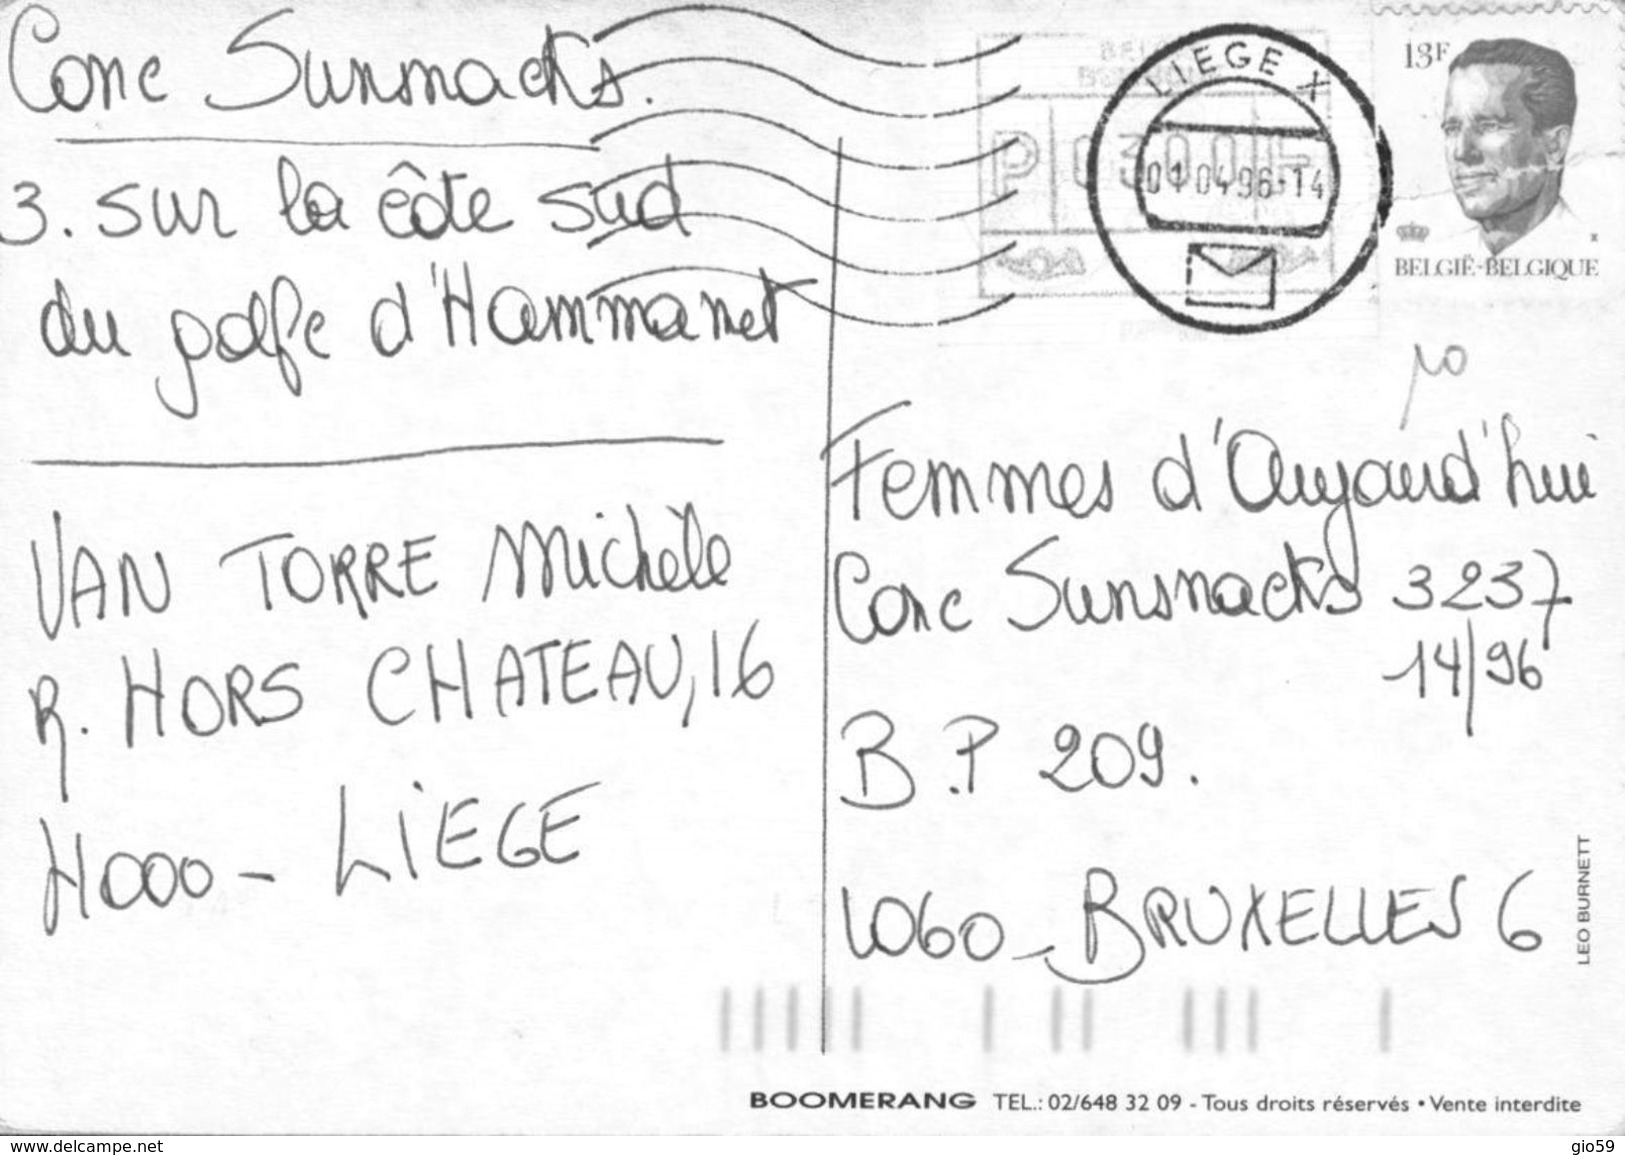 Conc Sunsnacks.
3. sur la côte sud
du golfe d'Hammamet
VAN TORRE Michèle
R. HORS CHATEAU, 16
4000 - LIEGE
LIEGE X
01 04 96-14
13F
BELGIË-BELGIQUE
Femmes d'Aujourd'hui
Conc Sunsnacks 3237
14/96
B.P 209.
1060 - BRUXELLES 6
LEO BURNETT
BOOMERANG TEL.: 02/648 32 09 - Tous droits réservés • Vente interdite
www.delcampe.net
gio59